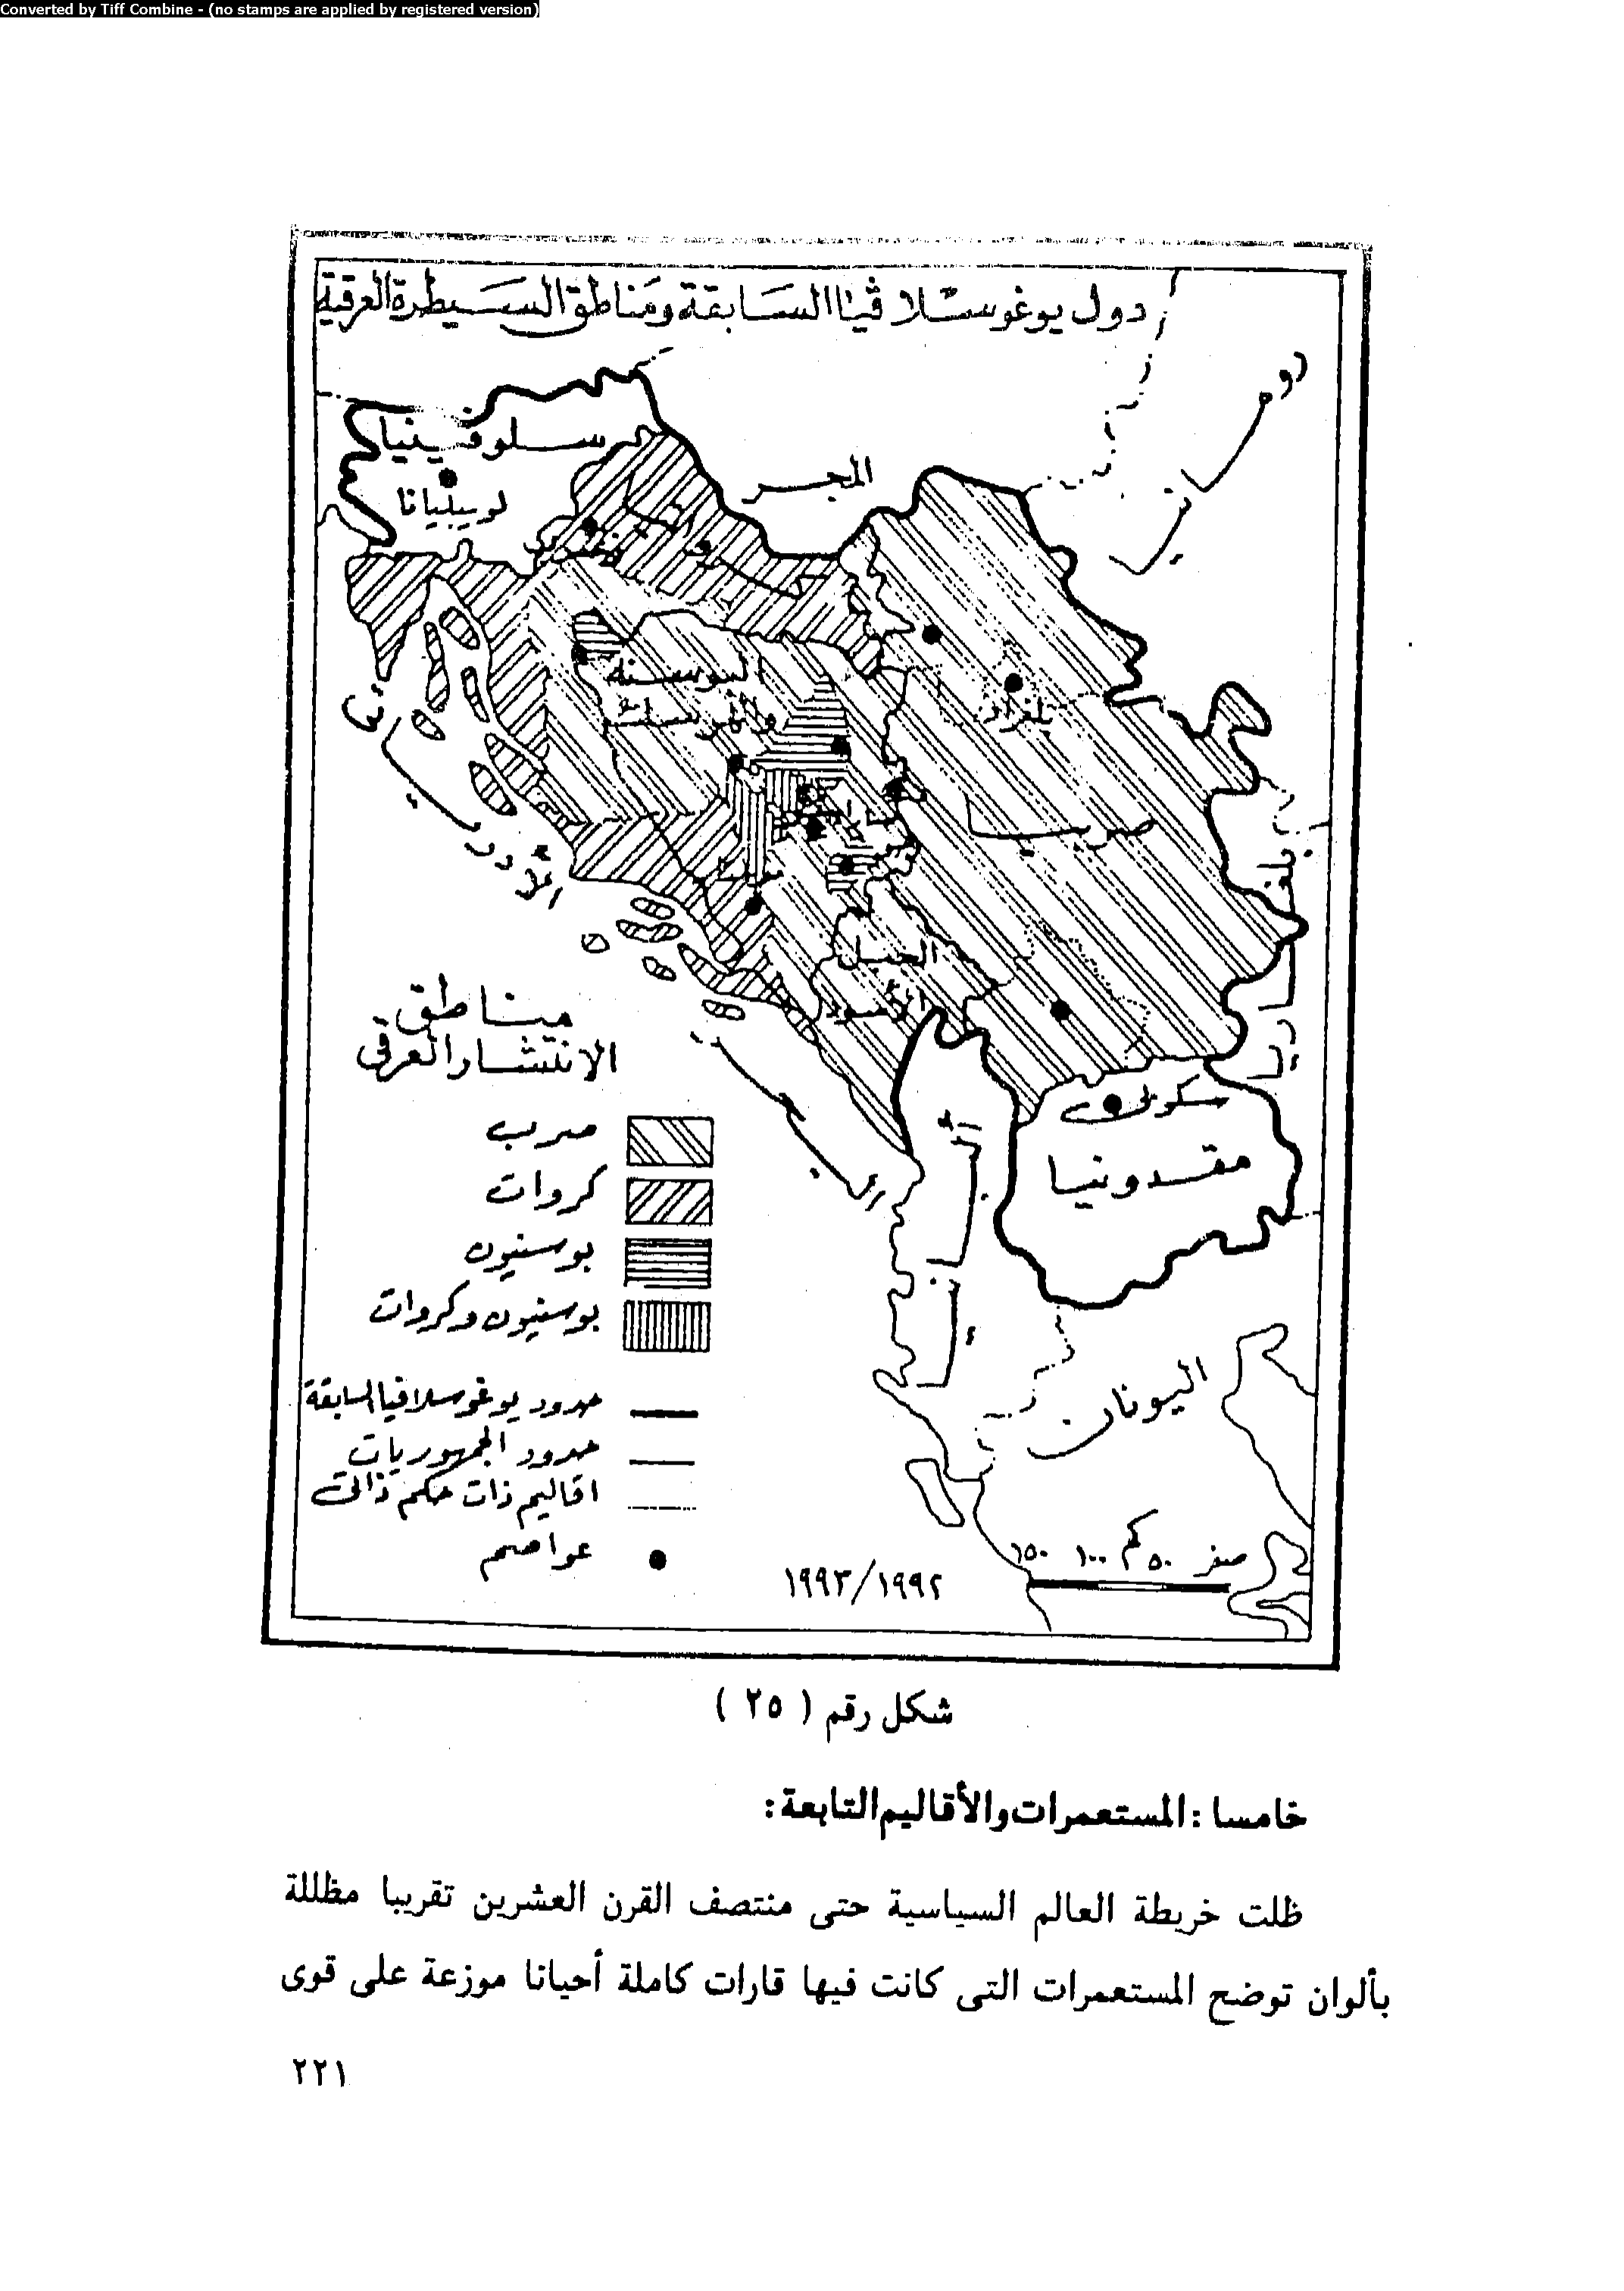 Converted by Tiff Combine - (no stamps are applied by registered version)
دول يوغوسلافيا السابقة ومناطق السيطرة العرقية
سلوفينيا
لوبيليانا
المجر
البوسنة
بلغراد
صربيا
الجبل
الأسود
سكوبى
مقدونيا
اليونان
مناطق
الانتشار العرقى
صرب
كروات
بوسنيون
بوسنيون وكروات
حدود يوغوسلافيا السابقة
حدود الجمهوريات
اقاليم ذات حكم ذاتى
عواصم
١٩٩٣/١٩٩٢
صفر ٥٠ كم ١٠٠ ١٥٠
شكل رقم ( ٢٥ )
خامسا : المستعمرات والأقاليم التابعة :
ظلت خريطة العالم السياسية حتى منتصف القرن العشرين تقريبا مظللة
بألوان توضح المستعمرات التى كانت فيها قارات كاملة أحيانا موزعة على قوى
٢٢١